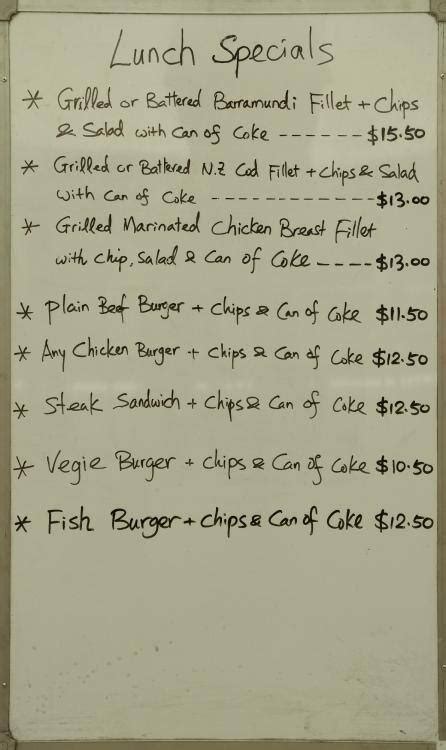 Lunch Specials
* Grilled or Battered Barramundi Fillet + Chips
& Salad with Can of Coke ------ $15.50
* Grilled or Battered N.Z Cod Fillet + chips & Salad
with Can of Coke ------------- $13.00
* Grilled Marinated Chicken Breast Fillet
with chip, salad & Can of Coke ---- $13.00
* Plain Beef Burger + chips & Can of Coke $11.50
* Any Chicken Burger + chips & Can of Coke $12.50
* Steak Sandwich + Chips & Can of Coke $12.50
* Vegie Burger + chips & Can of Coke $10.50
* Fish Burger + chips & Can of Coke $12.50